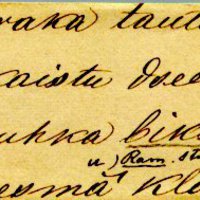 raka taut
aistu doe
uhka bik
u) Ram. st
esmä kla